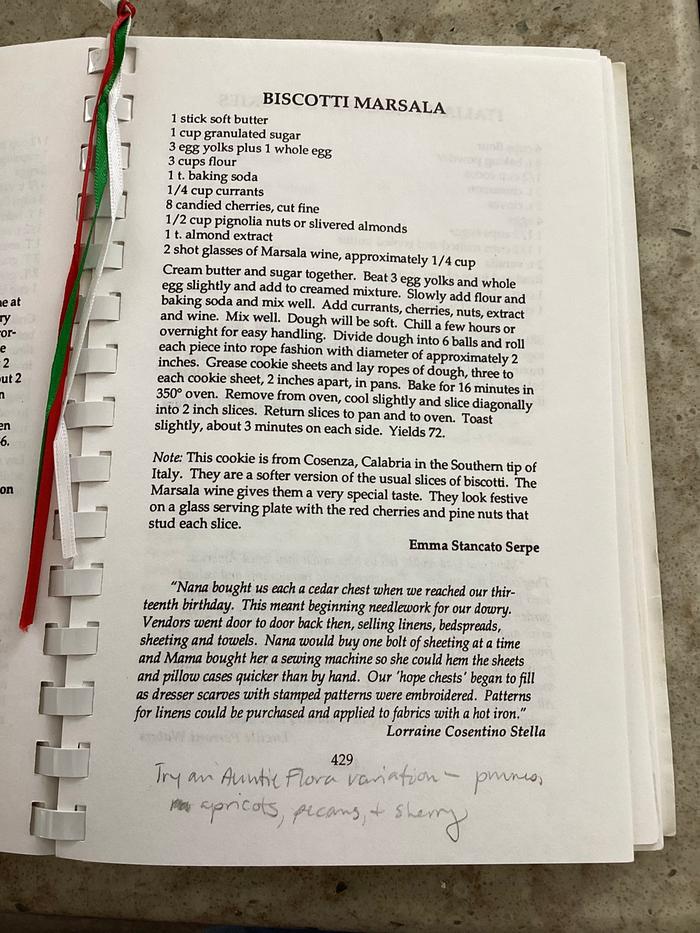 BISCOTTI MARSALA
1 stick soft butter
1 cup granulated sugar
3 egg yolks plus 1 whole egg
3 cups flour
1 t. baking soda
1/4 cup currants
8 candied cherries, cut fine
1/2 cup pignolia nuts or slivered almonds
1 t. almond extract
2 shot glasses of Marsala wine, approximately 1/4 cup
Cream butter and sugar together. Beat 3 egg yolks and whole
egg slightly and add to creamed mixture. Slowly add flour and
baking soda and mix well. Add currants, cherries, nuts, extract
and wine. Mix well. Dough will be soft. Chill a few hours or
overnight for easy handling. Divide dough into 6 balls and roll
each piece into rope fashion with diameter of approximately 2
inches. Grease cookie sheets and lay ropes of dough, three to
each cookie sheet, 2 inches apart, in pans. Bake for 16 minutes in
350° oven. Remove from oven, cool slightly and slice diagonally
into 2 inch slices. Return slices to pan and to oven. Toast
slightly, about 3 minutes on each side. Yields 72.
Note: This cookie is from Cosenza, Calabria in the Southern tip of
Italy. They are a softer version of the usual slices of biscotti. The
Marsala wine gives them a very special taste. They look festive
on a glass serving plate with the red cherries and pine nuts that
stud each slice.
Emma Stancato Serpe
"Nana bought us each a cedar chest when we reached our thir-
teenth birthday. This meant beginning needlework for our dowry.
Vendors went door to door back then, selling linens, bedspreads,
sheeting and towels. Nana would buy one bolt of sheeting at a time
and Mama bought her a sewing machine so she could hem the sheets
and pillow cases quicker than by hand. Our 'hope chests' began to fill
as dresser scarves with stamped patterns were embroidered. Patterns
for linens could be purchased and applied to fabrics with a hot iron."
Lorraine Cosentino Stella
429
Try an Auntie Flora variation – prunes,
apricots, pecans, + sherry